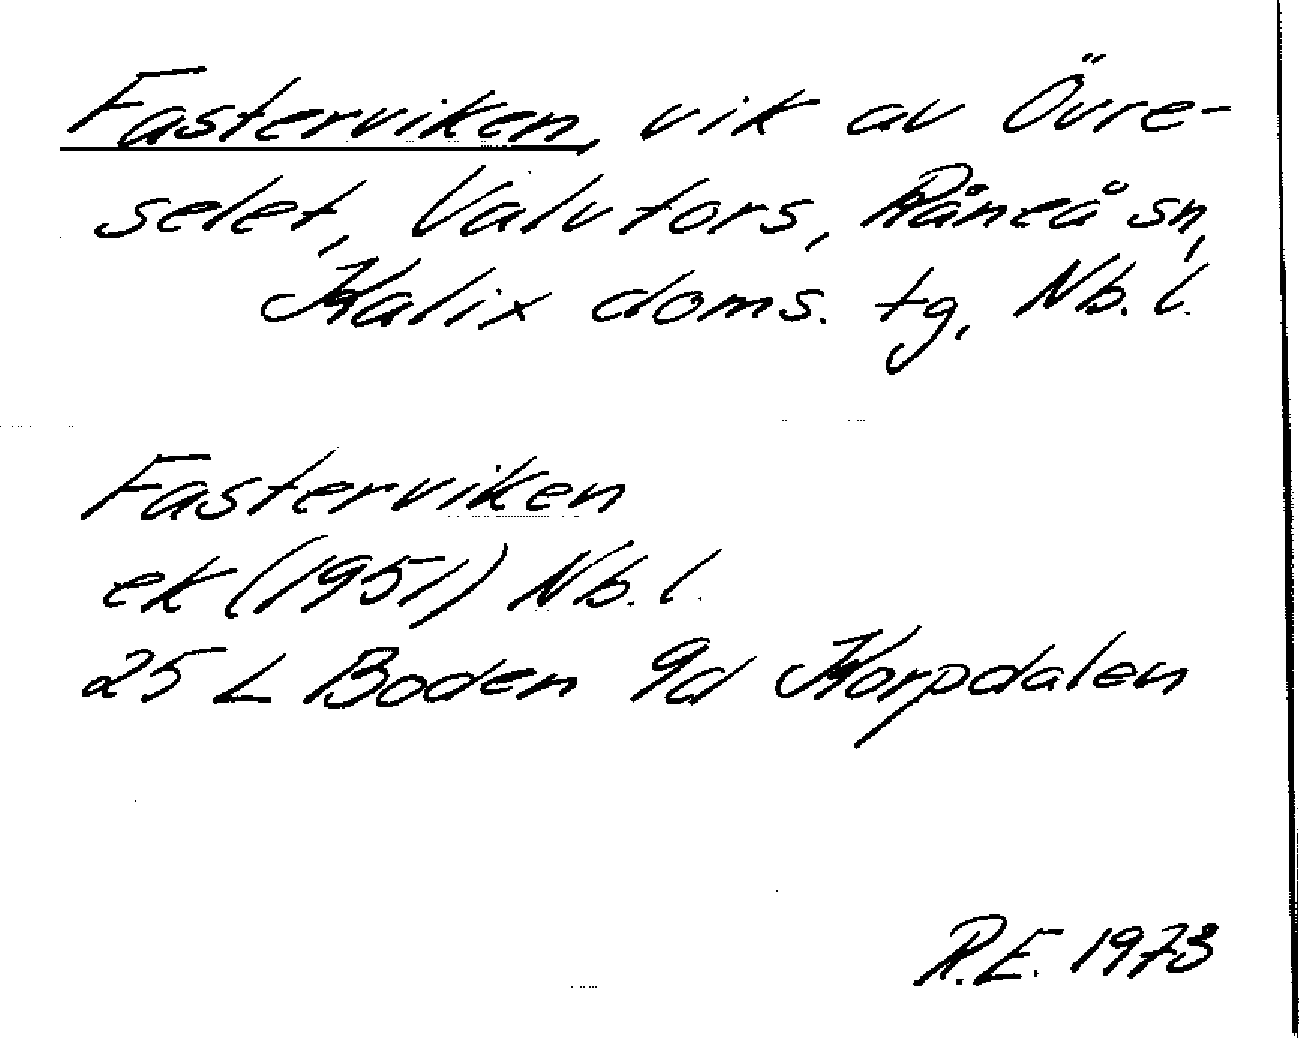 Fasterviken, vik av Övre-
selet, Valvtors, Råneå sn,
Kalix doms. tg, Nb. l.
Fasterviken
ek (1951) Nb. l.
25 L Boden 9d Korpdalen
R.E. 1973